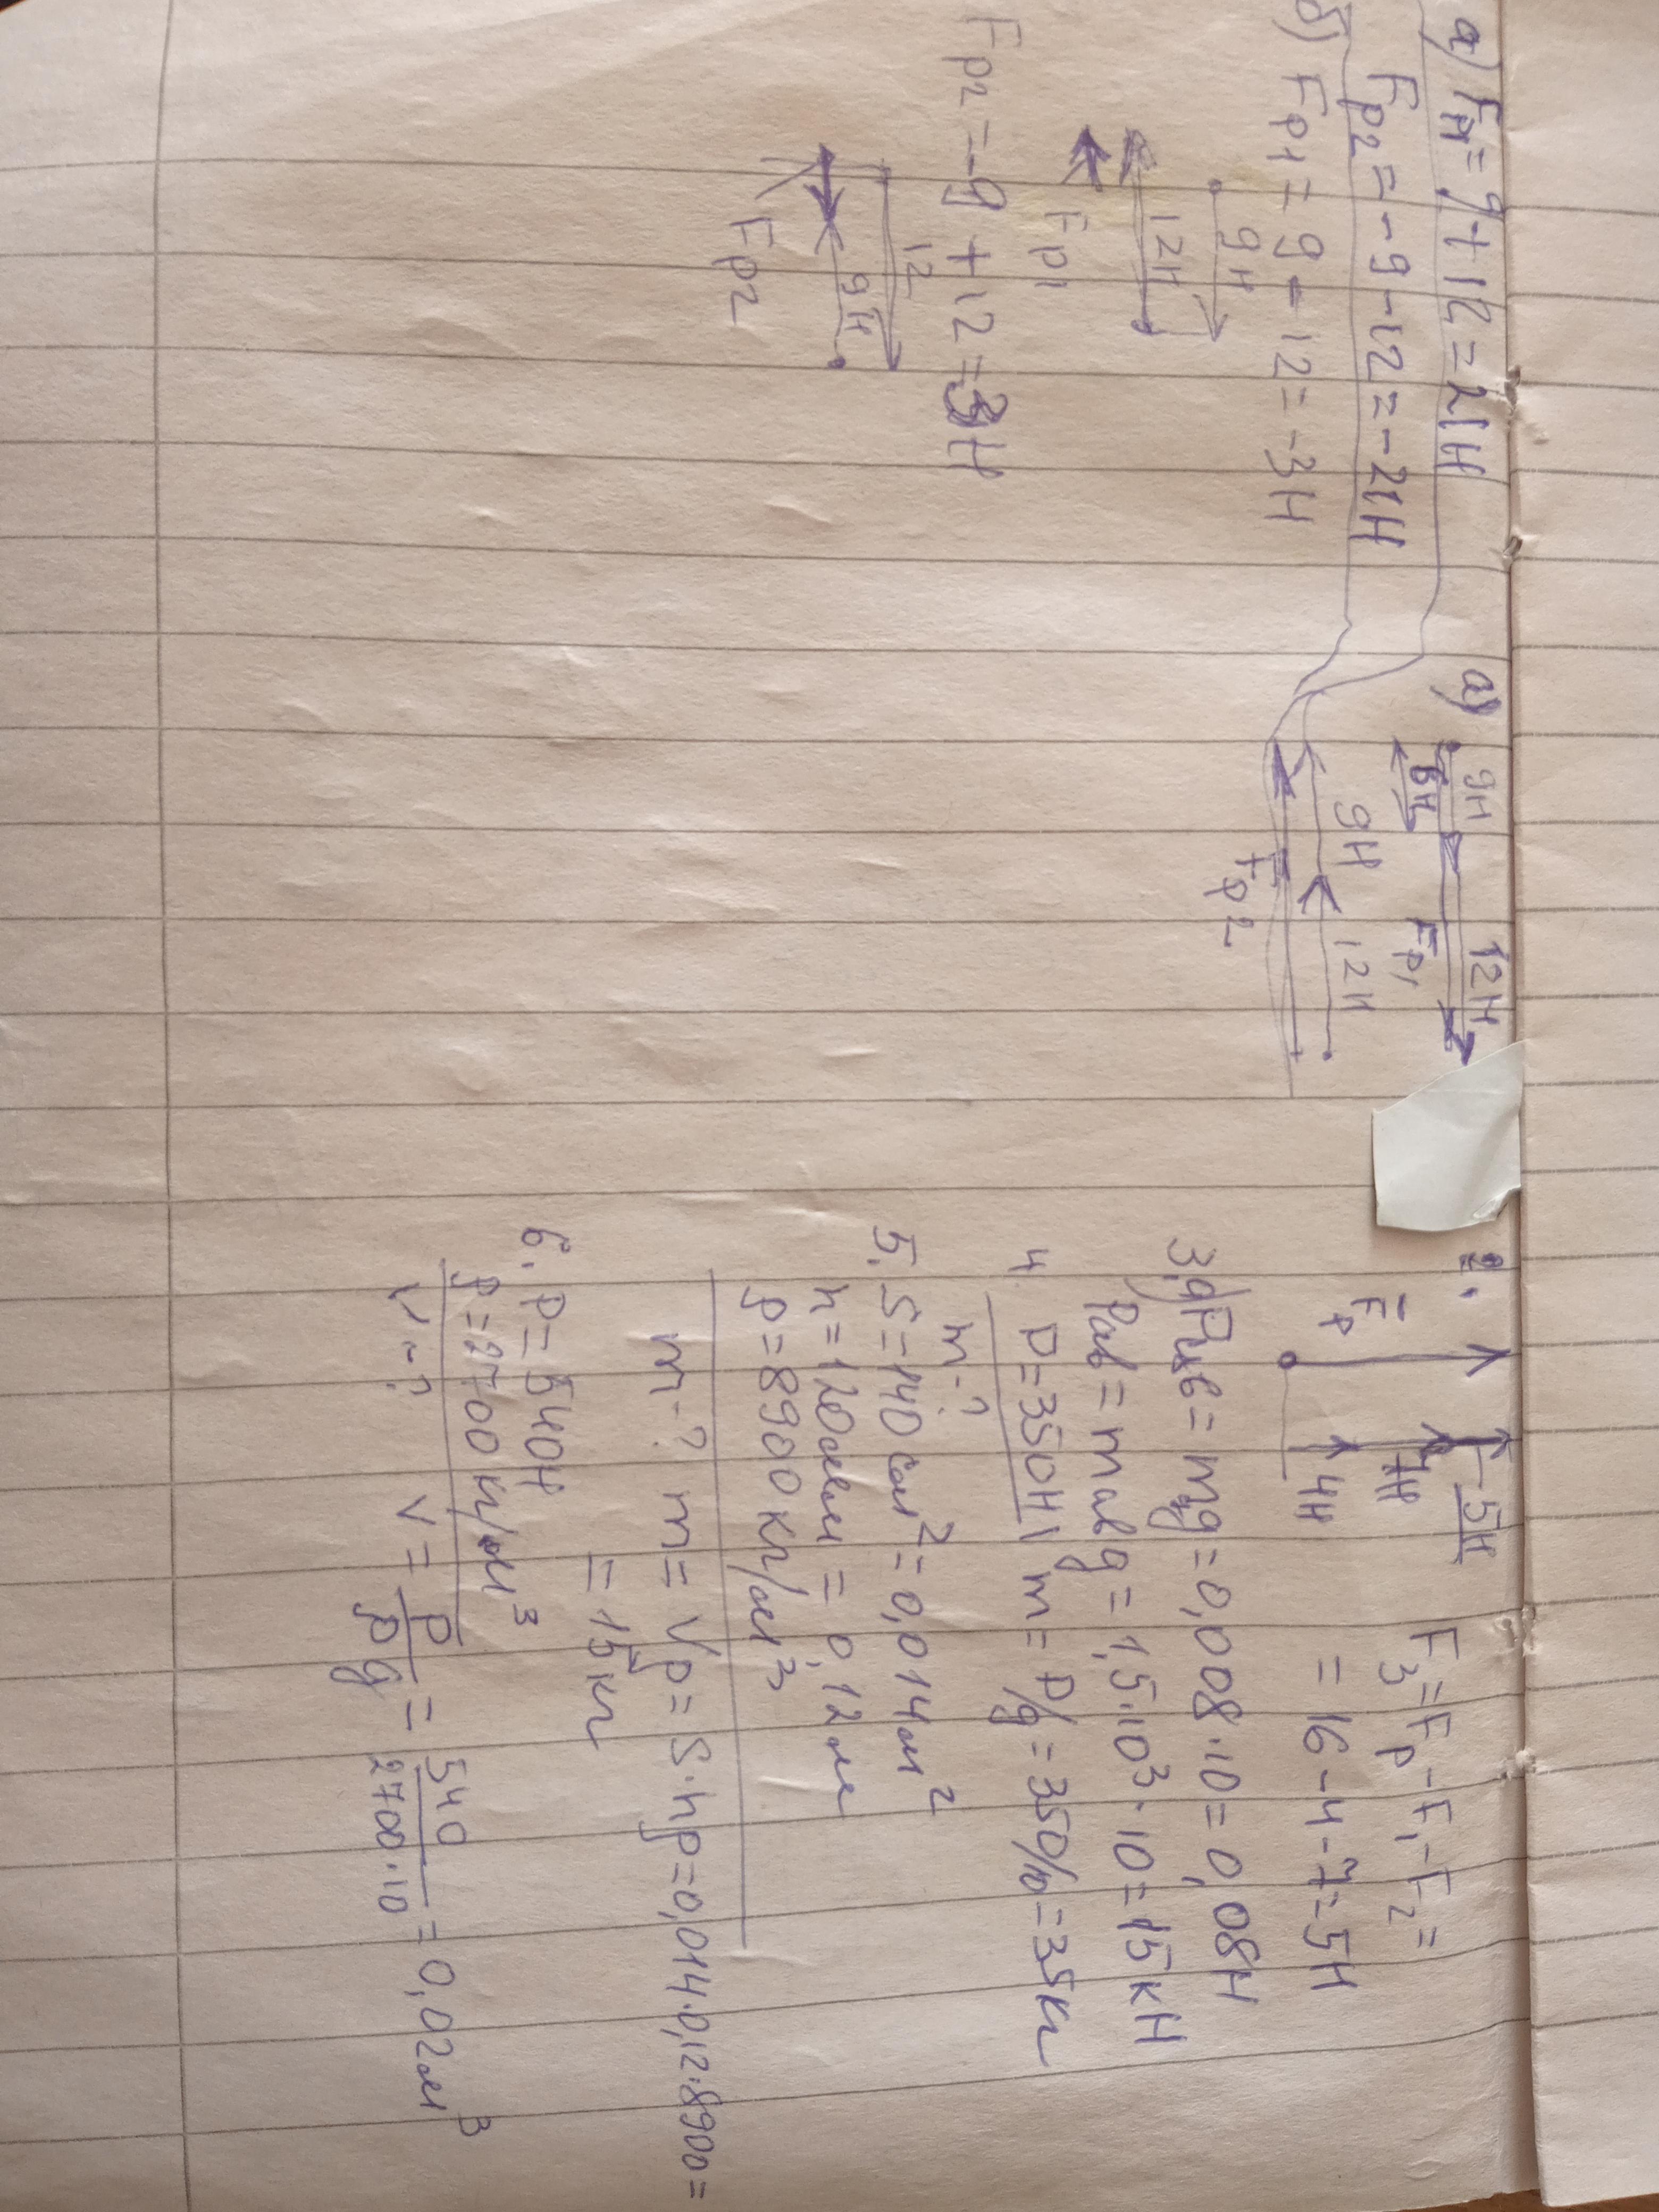 а) Fр1 = 9 + 12 = 21Н
Fр2 = -9 - 12 = -21Н
б) Fр1 = 9 - 12 = -3Н
9Н
12Н
Fр1
Fр2 = -9 + 12 = 3Н
12
9Н
Fр2
а) 9Н 12Н
Fр1
9Н 12Н
Fр2
2. 5Н
7Н
4Н
Fр
F3 = Fр - F1 - F2 =
= 16 - 4 - 7 = 5Н
3.а) = mg = 0,008·10 = 0,08Н
Рав = mав g = 1,5·10³·10 = 15кН
4. Р = 350Н m = P/g = 350/10 = 35кг
m - ?
5. S = 140см² = 0,014м²
h = 120мм = 0,12м
ρ = 8900кг/м³
m - ? m = Vρ = S·hρ = 0,014·0,12·8900 =
= 15кг
6. Р = 540Н
ρ = 2700кг/м³
V - ? V = P/ρg = 540/2700·10 = 0,02м³